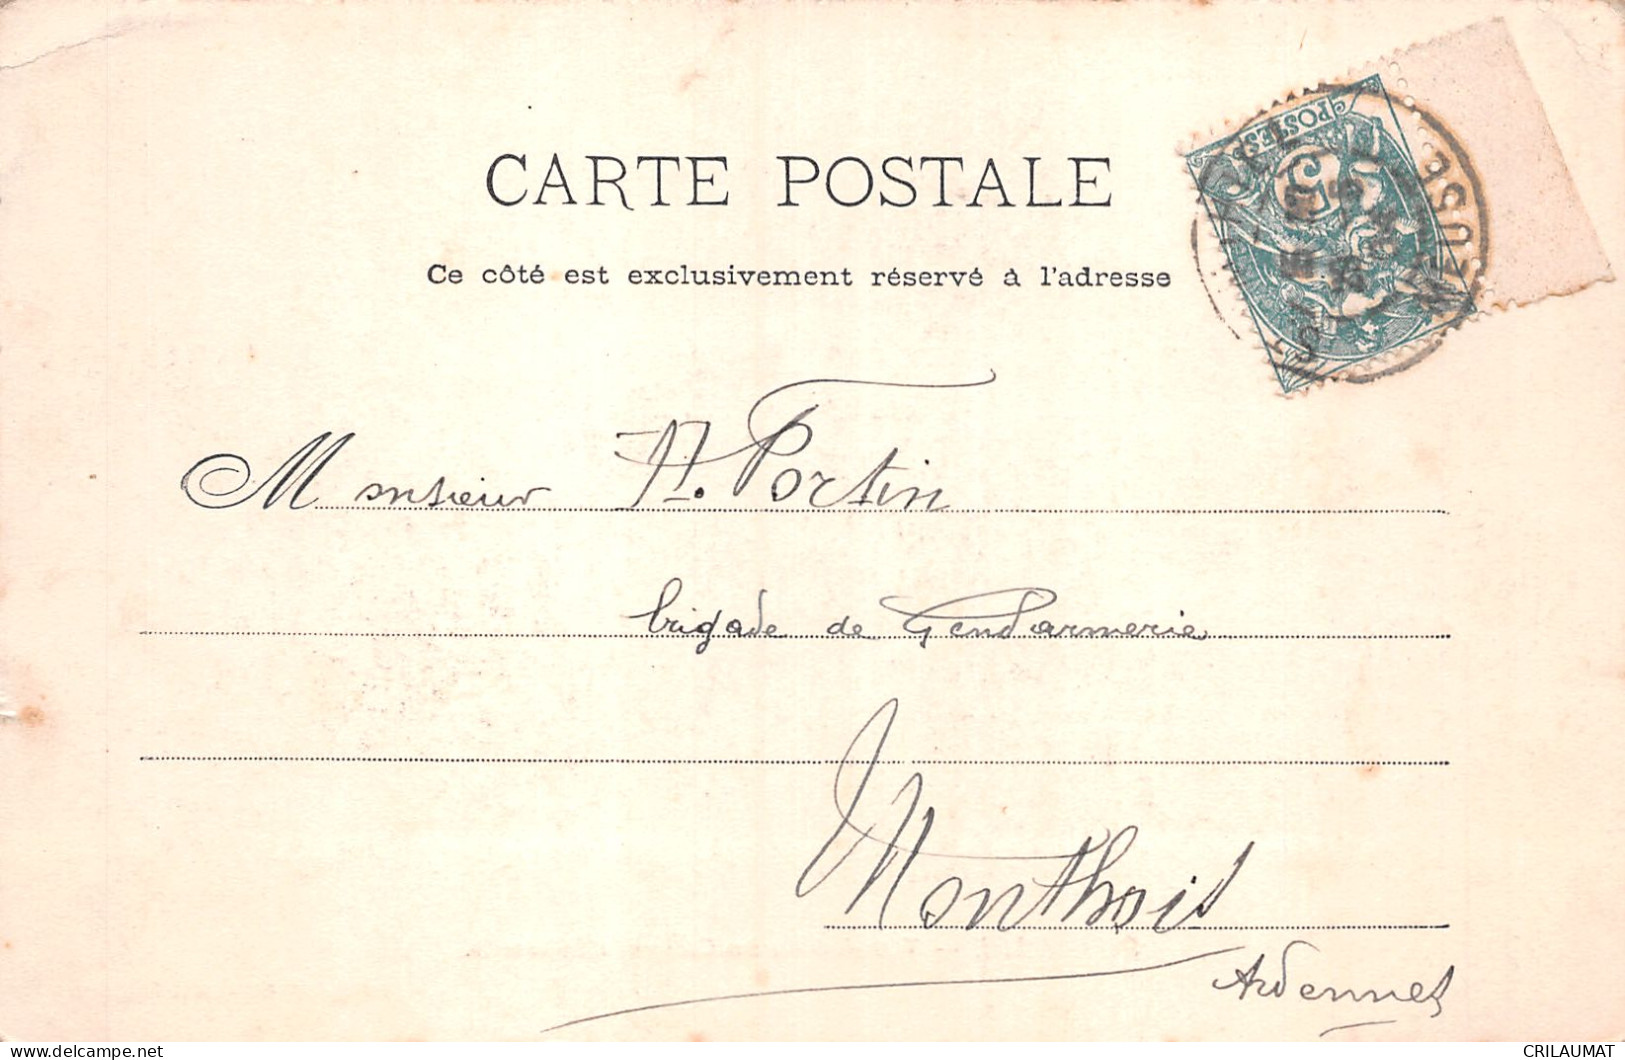 CARTE POSTALE
Ce côté est exclusivement réservé à l'adresse
POSTES
5
MEUSE
Monsieur A. Fortin
brigade de Gendarmerie
Monthois
Ardennes
delcampe.net
CRILAUMAT